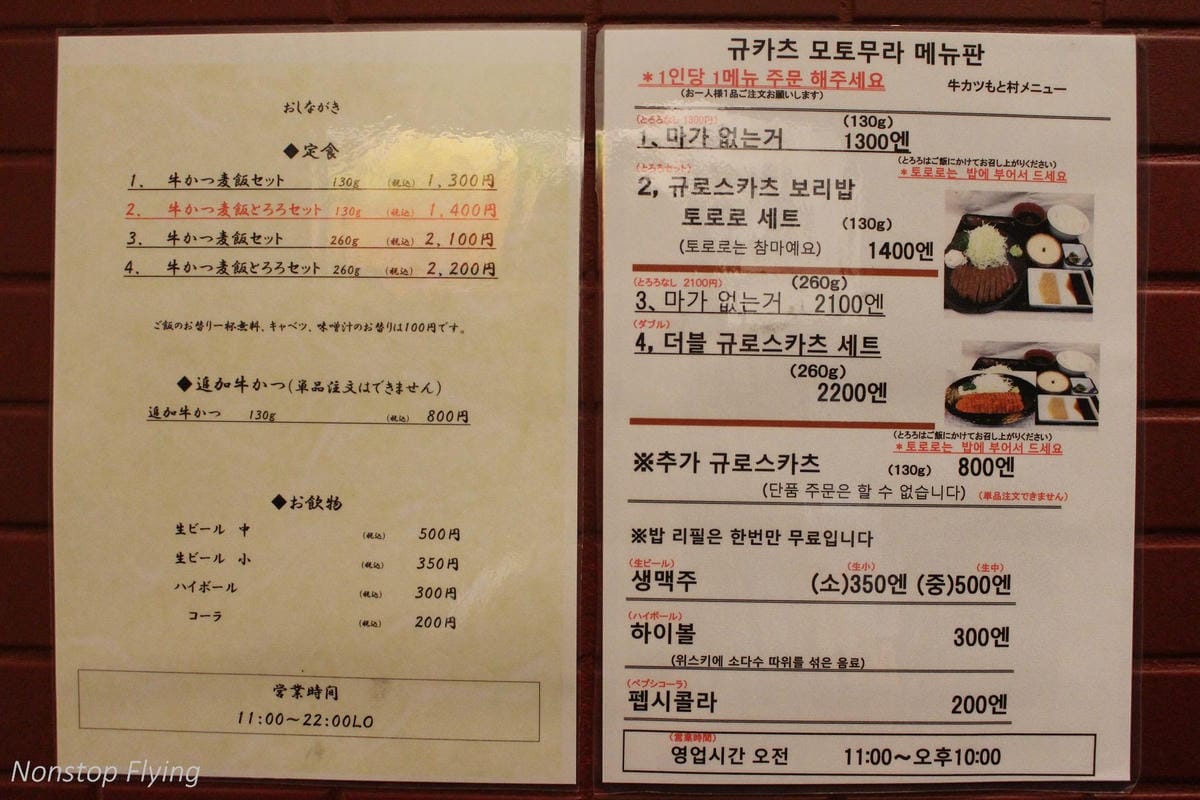 おしながき
◆定食
1. 牛かつ麦飯セット 130g (税込) 1,300円
2. 牛かつ麦飯とろろセット 130g (税込) 1,400円
3. 牛かつ麦飯セット 260g (税込) 2,100円
4. 牛かつ麦飯とろろセット 260g (税込) 2,200円
ご飯のお替り一杯無料、キャベツ、味噌汁のお替りは100円です。
◆追加牛かつ(単品注文はできません)
追加牛かつ 130g (税込) 800円
◆お飲物
生ビール 中 (税込) 500円
生ビール 小 (税込) 350円
ハイボール (税込) 300円
コーラ (税込) 200円
営業時間
11:00～22:00LO
규카츠 모토무라 메뉴판
＊1인당 1메뉴 주문 해주세요
(お一人様1品ご注文お願いします)
牛カツもと村メニュー
(とろろなし 1300円)
(130g)
1、마가 없는거 1300엔
(とろろはご飯にかけてお召し上がりください)
＊토로로는 밥에 부어서 드세요
(とろろセット)
2, 규로스카츠 보리밥
토로로 세트 (130g)
(토로로는 참마예요) 1400엔
(とろろなし 2100円) (260g)
3、마가 없는거 2100엔
(ダブル)
4, 더블 규로스카츠 세트
(260g)
2200엔
(とろろはご飯にかけてお召し上がりください)
＊토로로는 밥에 부어서 드세요
※추가 규로스카츠 (130g) 800엔
(단품 주문은 할 수 없습니다) (単品注文できません)
※밥 리필은 한번만 무료입니다
(生ビール) (生小) (生中)
생맥주 (소)350엔 (중)500엔
(ハイボール)
하이볼 300엔
(위스키에 소다수 따위를 섞은 음료)
(ペプシコーラ)
펩시콜라 200엔
(営業時間)
영업시간 오전 11:00～오후10:00
Nonstop Flying